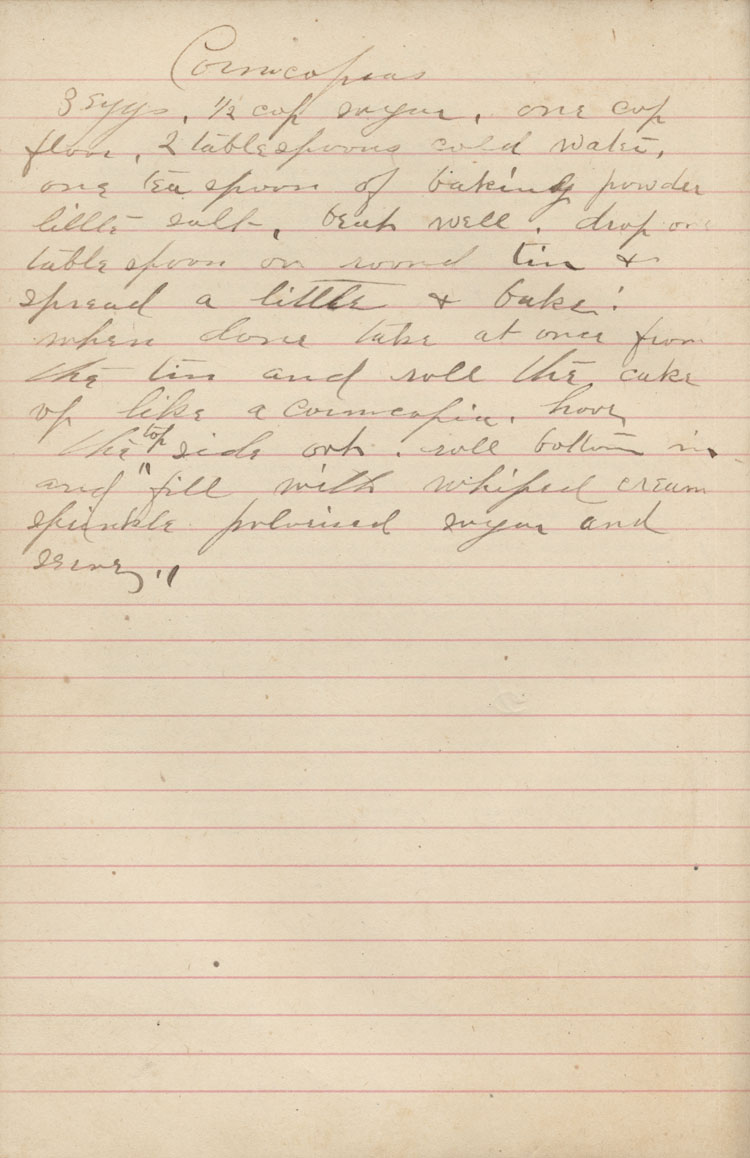 Cornicopias
3 Eggs, 1/2 cop sugar, one cop
floor, 2 tablespoons cold water,
one tea spoon of baking powder
little salt, beat well. drop one
table spoon on round tin &
spread a little & bake.
when done take at once from
the tin and roll the cake
up like a cornicopia. have
the top side out. roll bottom in
and fill with whiped cream
sprinkle pulverised sugar and
serve.